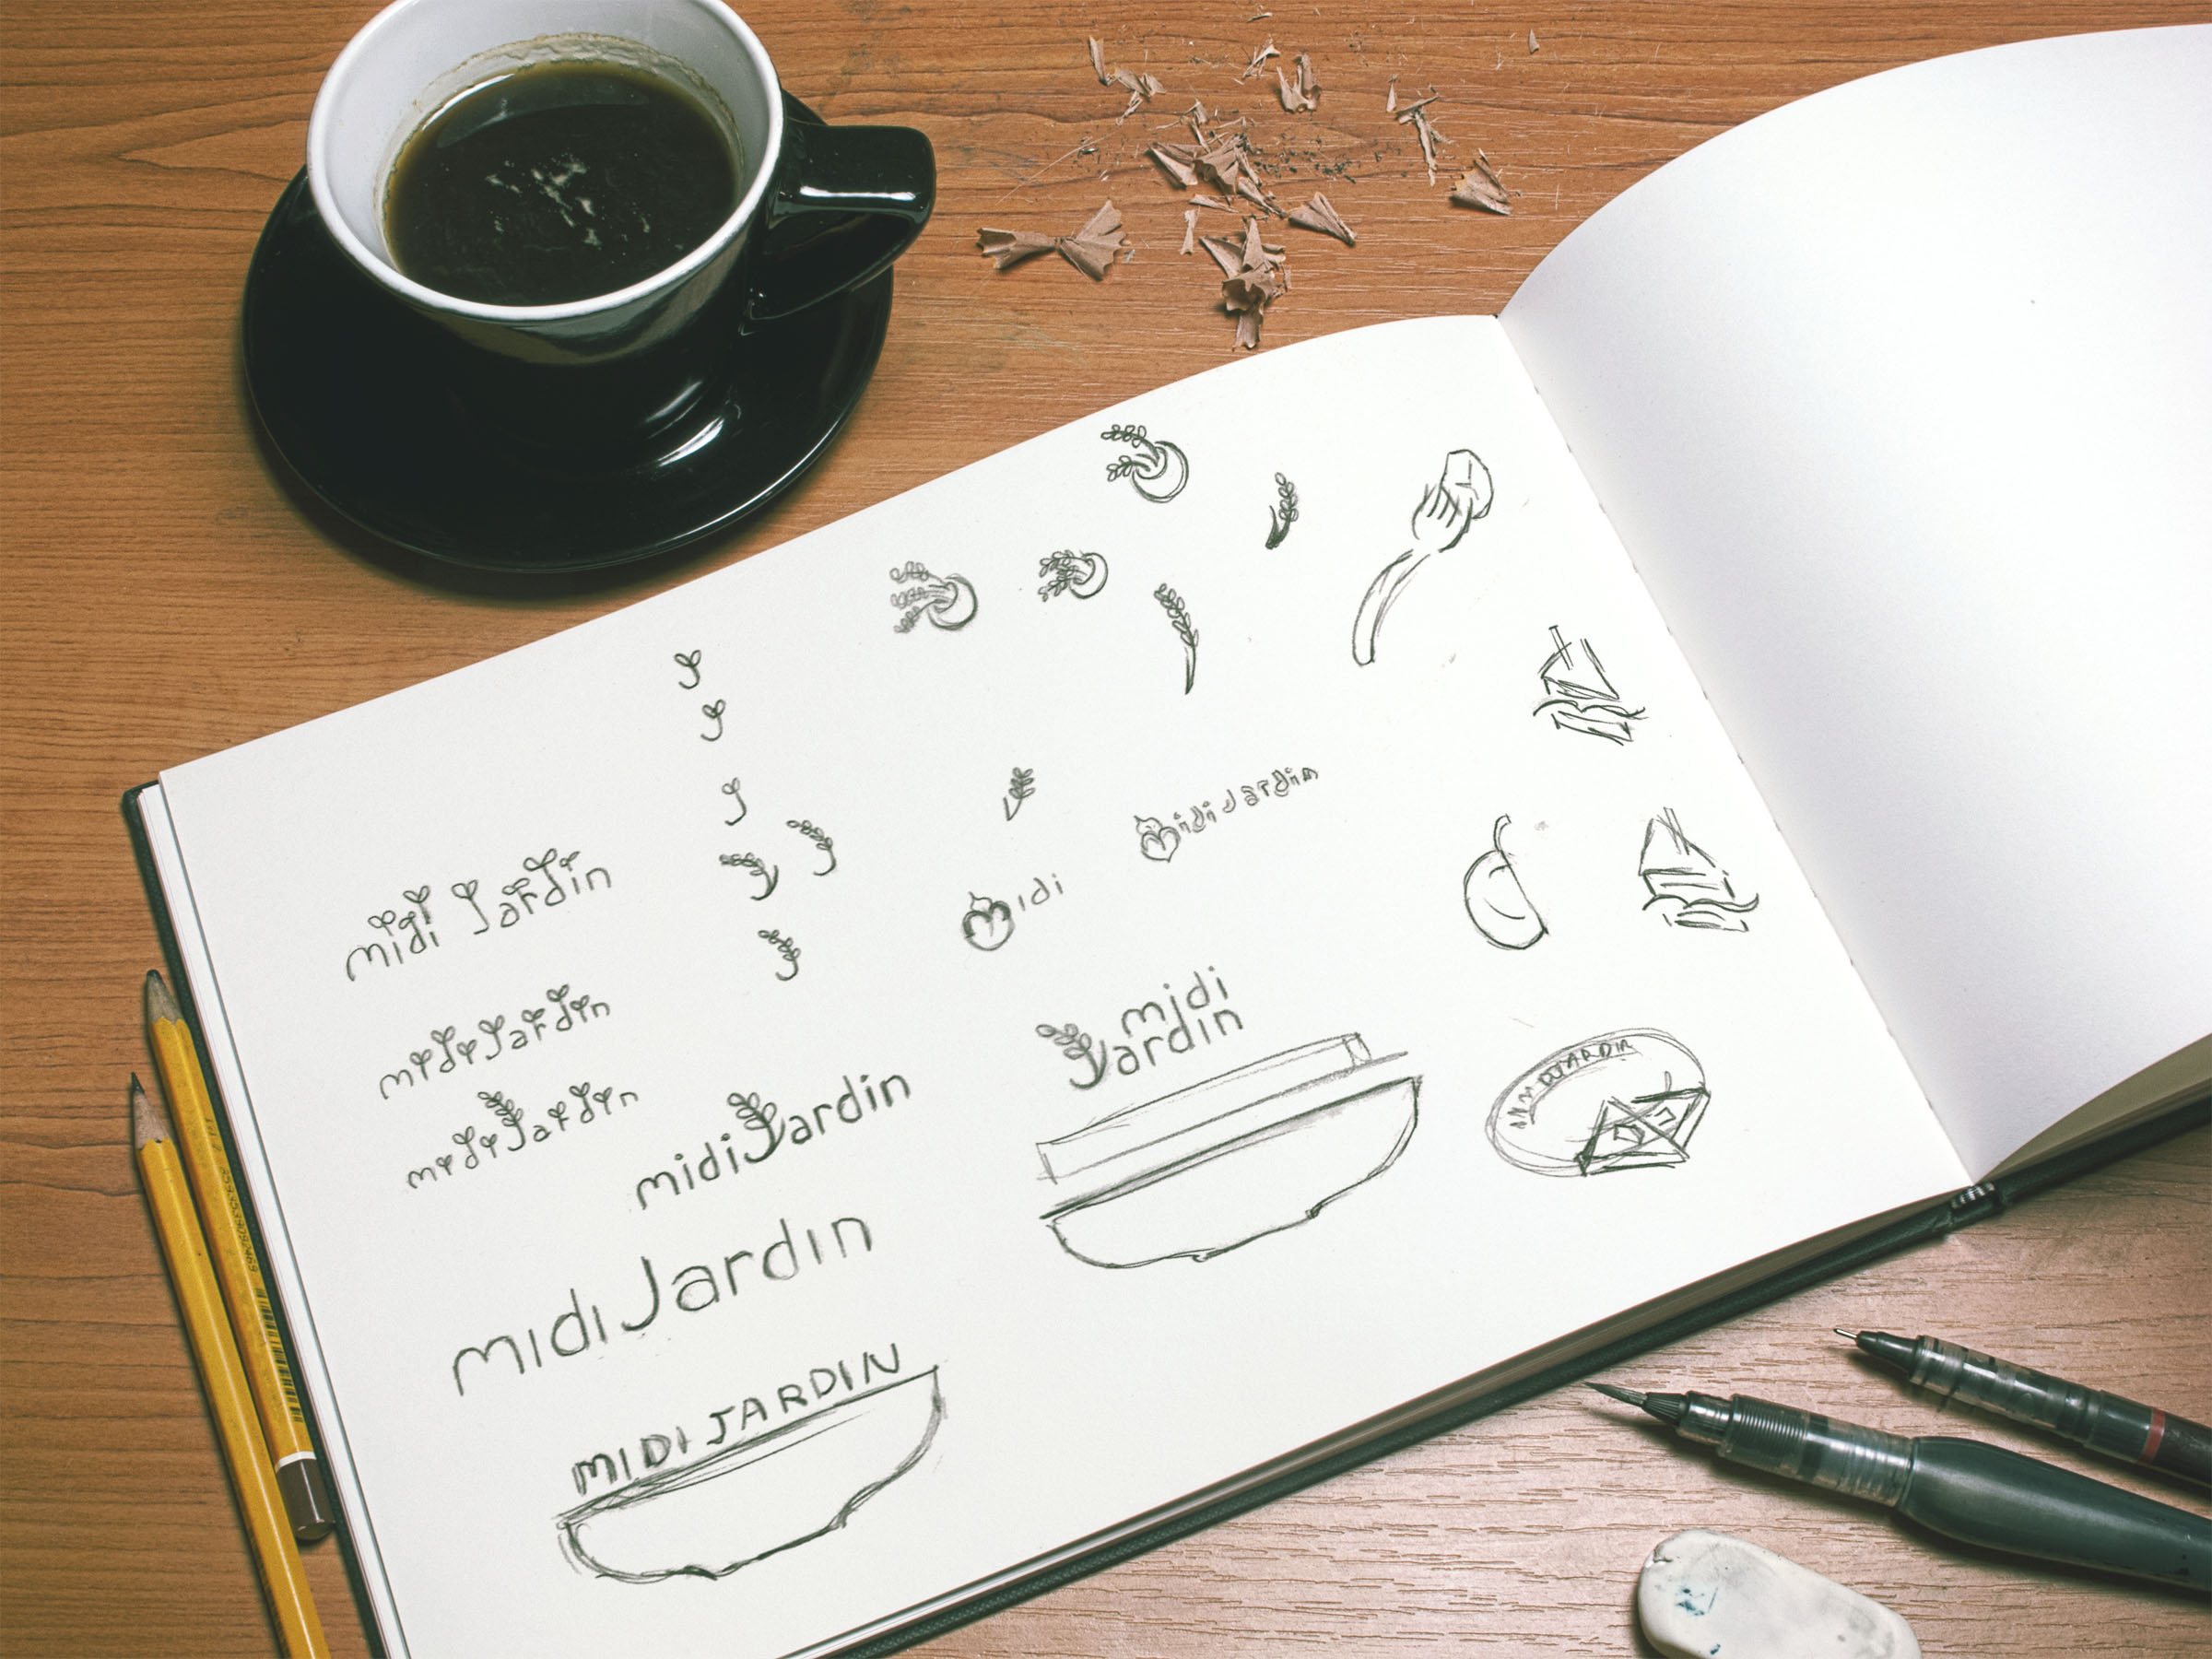 midi Jardin
midi Jardin
midi Jardin
midi Jardin
midi Jardin
MIDI JARDIN
midi
midi Jardin
midi
Jardin